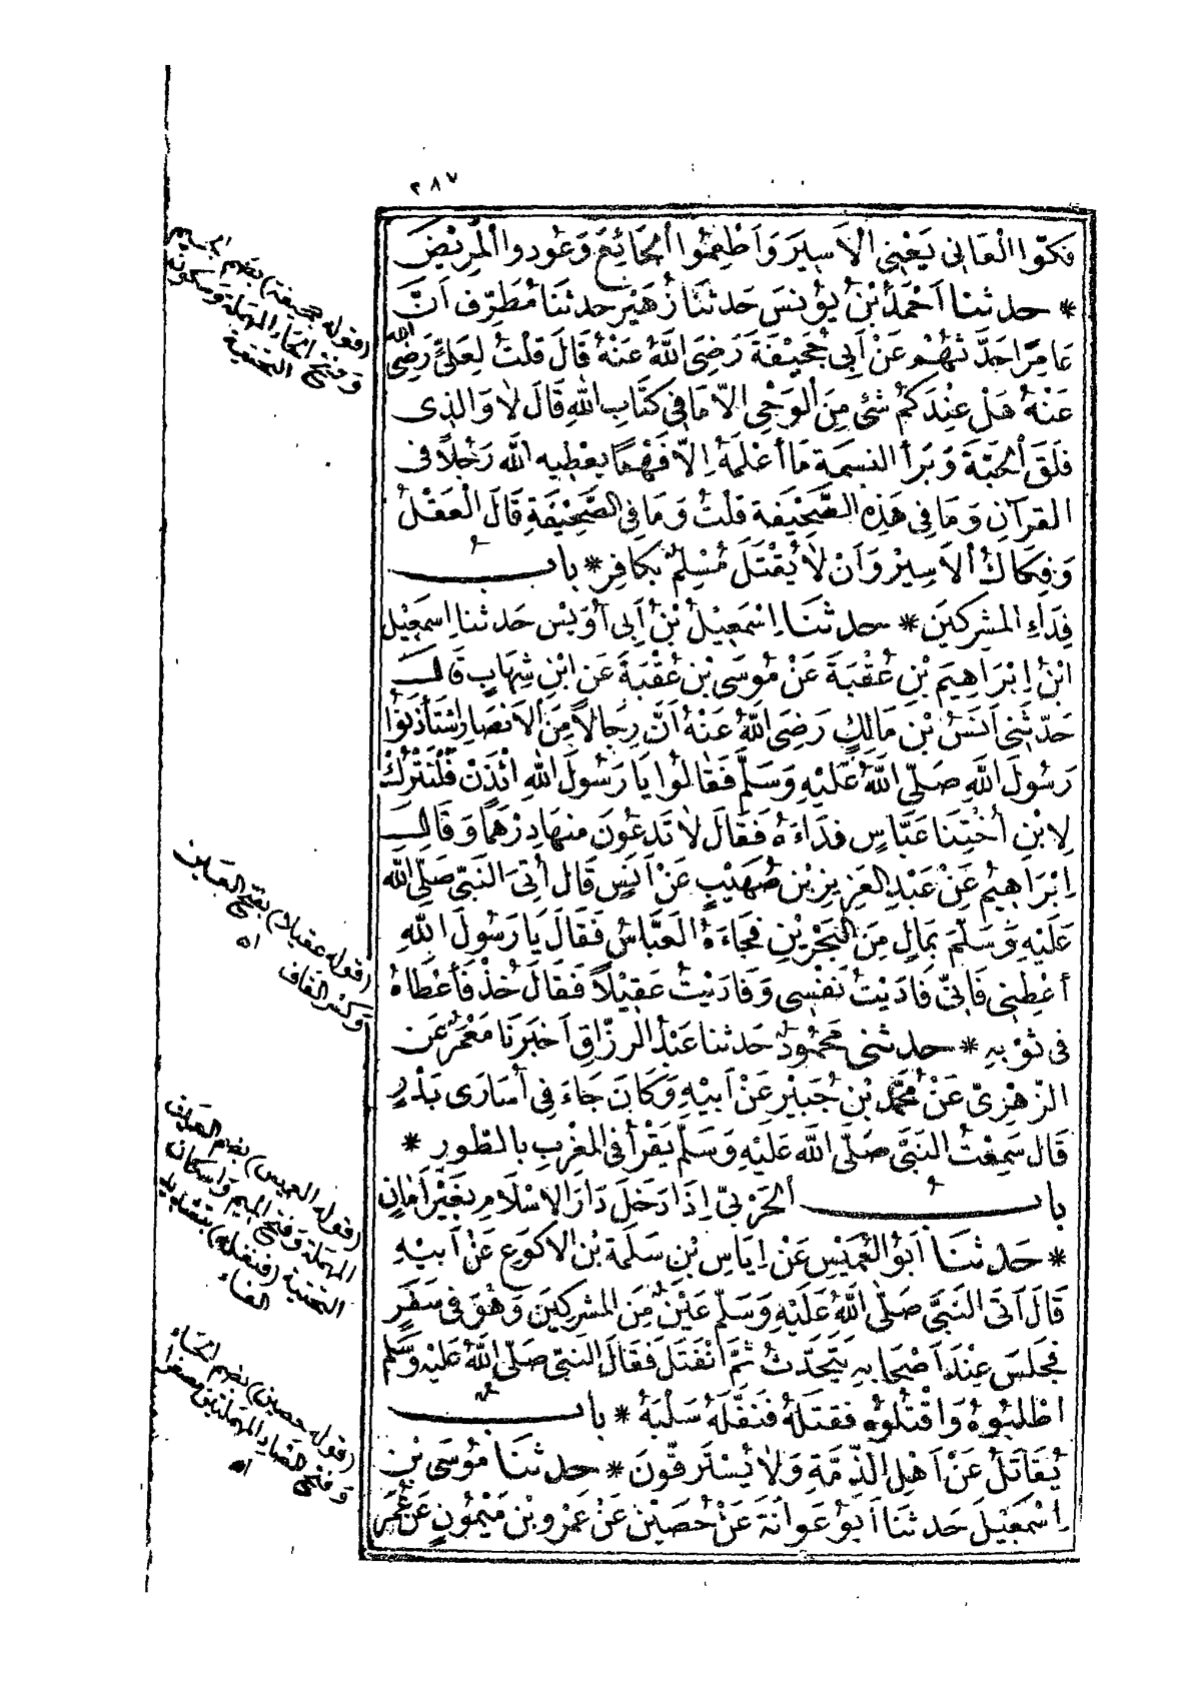 ٢٨٧
فكّوا الْعَانى يَعْنِى الْاَسِيرَ وَاَطْعِمُوا الْجَائِعَ وَعُودوا الْمَرِيْضَ
* حدثنا اَحْمَدُ بْنُ يُونسَ حَدثنَا زُهَيْر حدثنا مُطَرِّف اَنَّ
عَامِرًا حَدَّثهُمْ عَنْ اَبِى جُحَيْفَةَ رَضِىَ اللّٰهُ عَنْهُ قَالَ قلْتُ لِعَلىٍّ رَضِىَ الله
عَنْهُ هَلْ عِنْدَكُمْ شئ مِنَ الْوَحْىِ الاّ مَا فى كتَابِ اللهِ قَالَ لَا وَالذِى
فلَقَ الْحَبَّةَ وَبَرأ النسمَة مَا أعْلَمُهُ اِلاّ فَهْمًا يعْطِيهِ اللّٰه رَجُلاً فى
القرآنِ وَمَا فِى هَذِهِ الصَّحِيْفَة قلْتُ وَمَا فِى الصَّحِيْفَةِ قَالَ الْعَقْلُ
وَفِكَاكُ الْاَسِيْرِ وَاَنْ لَا يُقْتَلَ مُسْلِمٌ بِكَافِرٍ * باب
فِدَاءِ المشركِينَ * حدثنَا اِسْمَعِيْلُ بْنُ اَبِى أوَيْس حَدثنا اِسمَعِيْل
ابْنُ اِبْرَاهِيَم بْنِ عُقْبَةَ عَنْ مُوسَى بْن عُقْبَةَ عَن ابْنِ شِهَابٍ قَالَ
حَدّثَنِى اَنَسُ بْن مَالِكٍ رَضِىَ اللّٰهُ عَنْهُ اَنَّ رِجَالاً مِنَ الاَنْصَارِ اسْتَأذَنوُا
رَسُولَ اللّٰهِ صَلّى اللّٰهُ عَلَيْهِ وَسَلَّم فَقَالُوا يَا رَسُولَ اللهِ ائْذَنْ فَلْنَتْرُكْ
لِابْنِ أخْتِنَا عَبَّاسٍ فدَاءَهُ فَقَالَ لَا تَدعُونَ منهَا دِرْهَمًا وَقَالَ
اِبْرَاهِيُم عَنْ عَبْدِ العَزِيز بْن صُهَيْبٍ عَنْ اَنَسٍ قَال أتِىَ النَّبِىّ صَلّى الله
عَلَيْهِ وَسَلَّمَ بمَالٍ مِنَ البَحْرَيْنِ فجَاءَهُ العَبَّاسُ فَقَالَ يَا رَسُولَ اللّٰهِ
أعْطِنِى فَاِنِّى فَادَيْتُ نَفْسِى وَفَادَيْتُ عَقِيْلاً فَقَالَ خُذْ فَأعْطَاهُ
فى ثوْبِهِ * حدثنى مَحْمُودٌ حَدثنا عَبْدُ الرَزَّاقِ اَخبَرَنَا مَعْمَرٌ عَن
الزهْرِىّ عَنْ مُحَمَّد بْن جُبَيْرٍ عَنْ اَبِيْهِ وَكَانَ جَاءَ فِى أسَارَى بَدْرٍ
قَال سَمِعْتُ النَبِىَّ صَلَّى اللّٰه عَلَيْهِ وَسَلّم يَقْرَأ فى المغْرِبِ بالطّور *
باب الحَرْبىّ اِذَا دَخَلَ دَارَ الاِسْلَامِ بِغَيْرِ أمَانٍ
* حَدثنَا اَبُو العُمَيْس عَنْ اِيَاس بْنِ سَلَمَة بْن الاكوَعِ عَنْ اَبِيْهِ
قَالَ اَتَى النَبِىَّ صَلّى اللّٰهُ عَلَيْهِ وَسَلّم عَيْنٌ مِن المشركِينَ وَهُوَ فى سَفَرٍ
فجَلَسَ عِنْدَ اَصْحَابِهِ يَتَحَدَّثُ ثمَّ انْفتَلَ فَقَالَ النَبِىّ صَلّى اللّٰهُ عَلَيْهِ وَسَلَّم
اطْلبُوهُ وَاقْتُلُوهُ فقتَلَهُ فَنَفَّلَهُ سَلَبَهُ * باب
يُقَاتَلُ عَنْ اَهْلِ الذّمَّةِ وَلَا يُسْتَرَقّونَ * حدثنَا مُوسَى بْن
اِسْمَعِيْلَ حَدثنَا اَبُو عَوَانَة عَنْ حُصَيْن عَنْ عَمْرِو بْن مَيْمُونٍ عَنْ عُمَرَ
(قوله جحيفة) بضم الجيم
وفتح الحاء المهملة وسكون
التحتية
(قوله عقيلا) بفتح العين
وكسر القاف اه
(قوله العميس) بضم العين
المهملة وفتح الميم واسكان
التحتية (فنفله) بتشديد
الفاء
(قوله حصين) بضم الحاء
وفتح الصاد المهملتين مصغرا
اه